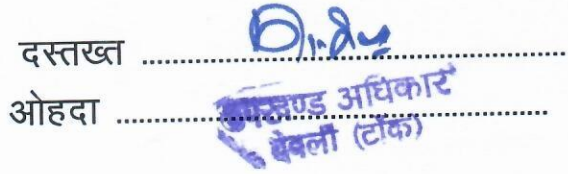 दस्तख्त ....................
ओहदा ....................
उपखण्ड अधिकारी
देवली (टोंक)